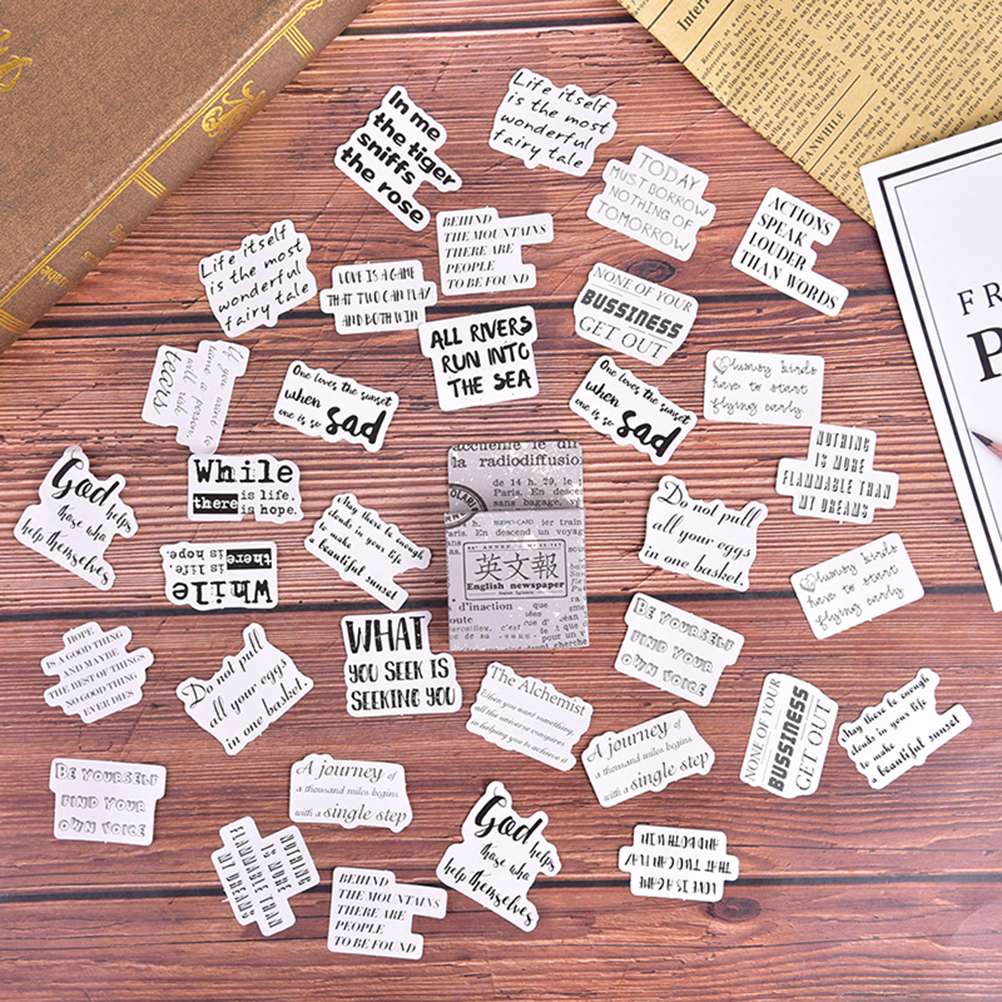 In me
the tiger
sniffs
the rose
Life itself
is the most
wonderful
fairy tale
TODAY
MUST BORROW
NOTHING OF
TOMORROW
ACTIONS
SPEAK
LOUDER
THAN WORDS
BEHIND
THE MOUNTAINS
THERE ARE
PEOPLE
TO BE FOUND
Life itself
is the most
wonderful
fairy tale
LOVE IS A GAME
THAT TWO CAN PLAY
AND BOTH WIN
NONE OF YOUR
BUSSINESS
GET OUT
ALL RIVERS
RUN INTO
THE SEA
If you want to
tame a person,
will risk
tears
One loves the sunset
when
one is so sad
One loves the sunset
when
one is so sad
Clumsy birds
have to start
flying early
NOTHING
IS MORE
FLAMMABLE THAN
MY DREAMS
God helps
those who
help themselves
While
there is life.
is hope.
May there be enough
clouds in your life
to make
a beautiful sunset
accueille le di
la radiodiffusio
de 14 h. 29, le
Paris. En desce
sans bagage, v
MEMO-CARD
Paris. En descend un voyag
英文報
English newspaper
d'inaction
Do not pull
all your eggs
in one basket.
Clumsy birds
have to start
flying early
While
there is life.
is hope
BE YOURSELF
FIND YOUR
OWN VOICE
HOPE
IS A GOOD THING
AND MAYBE
THE BEST OF THINGS
NO GOOD THING
EVER DIES
Do not pull
all your eggs
in one basket.
WHAT
YOU SEEK IS
SEEKING YOU
The Alchemist
When you want something,
all the universe conspires
in helping you to achieve it
A journey of
a thousand miles begins
with a single step
NONE OF YOUR
BUSSINESS
GET OUT
May there be enough
clouds in your life
to make
a beautiful sunset
BE YOURSELF
FIND YOUR
OWN VOICE
A journey of
a thousand miles begins
with a single step
God helps
those who
help themselves
LOVE IS A GAME
THAT TWO CAN PLAY
AND BOTH WIN
NOTHING
IS MORE
FLAMMABLE THAN
MY DREAMS
BEHIND
THE MOUNTAINS
THERE ARE
PEOPLE
TO BE FOUND
Intern
MEANWHILE
FR
P